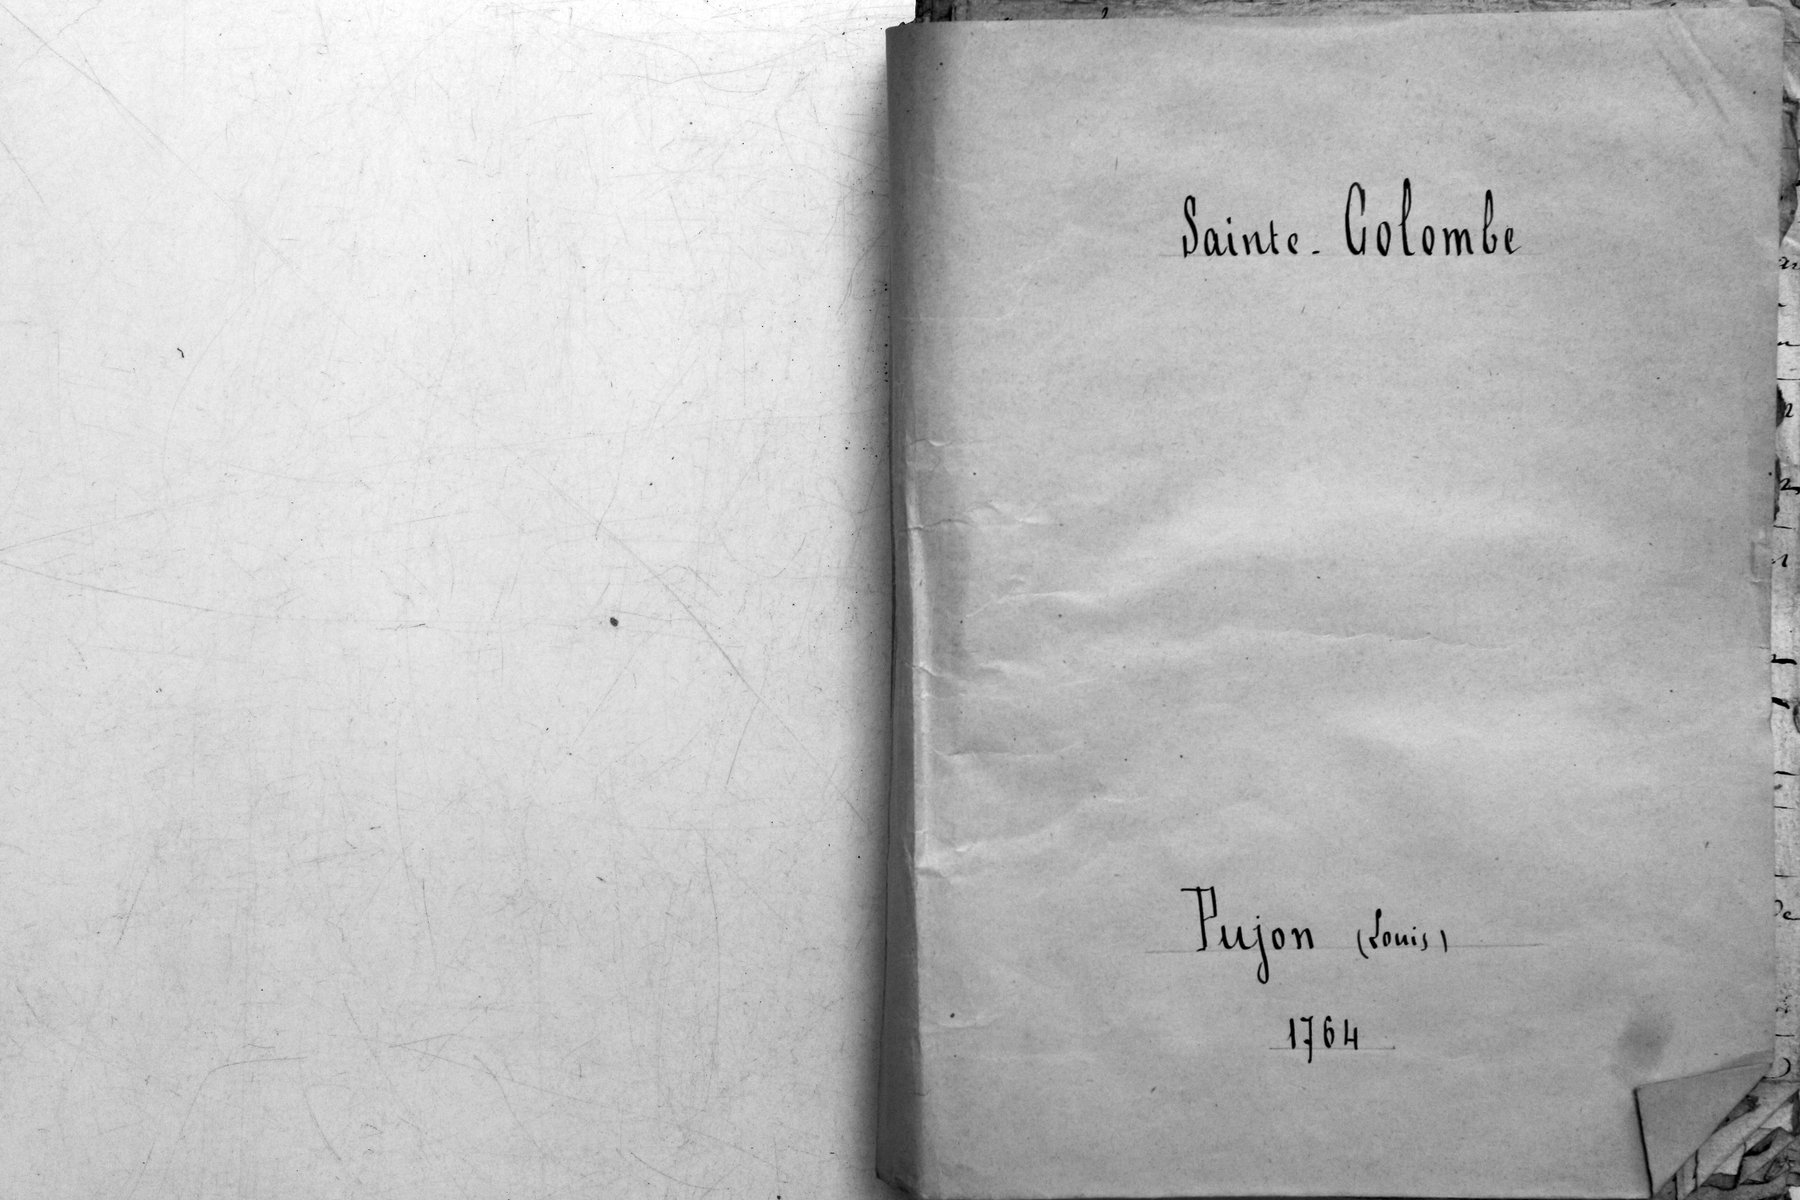 Sainte-Colombe
Pujon (Louis)
1764